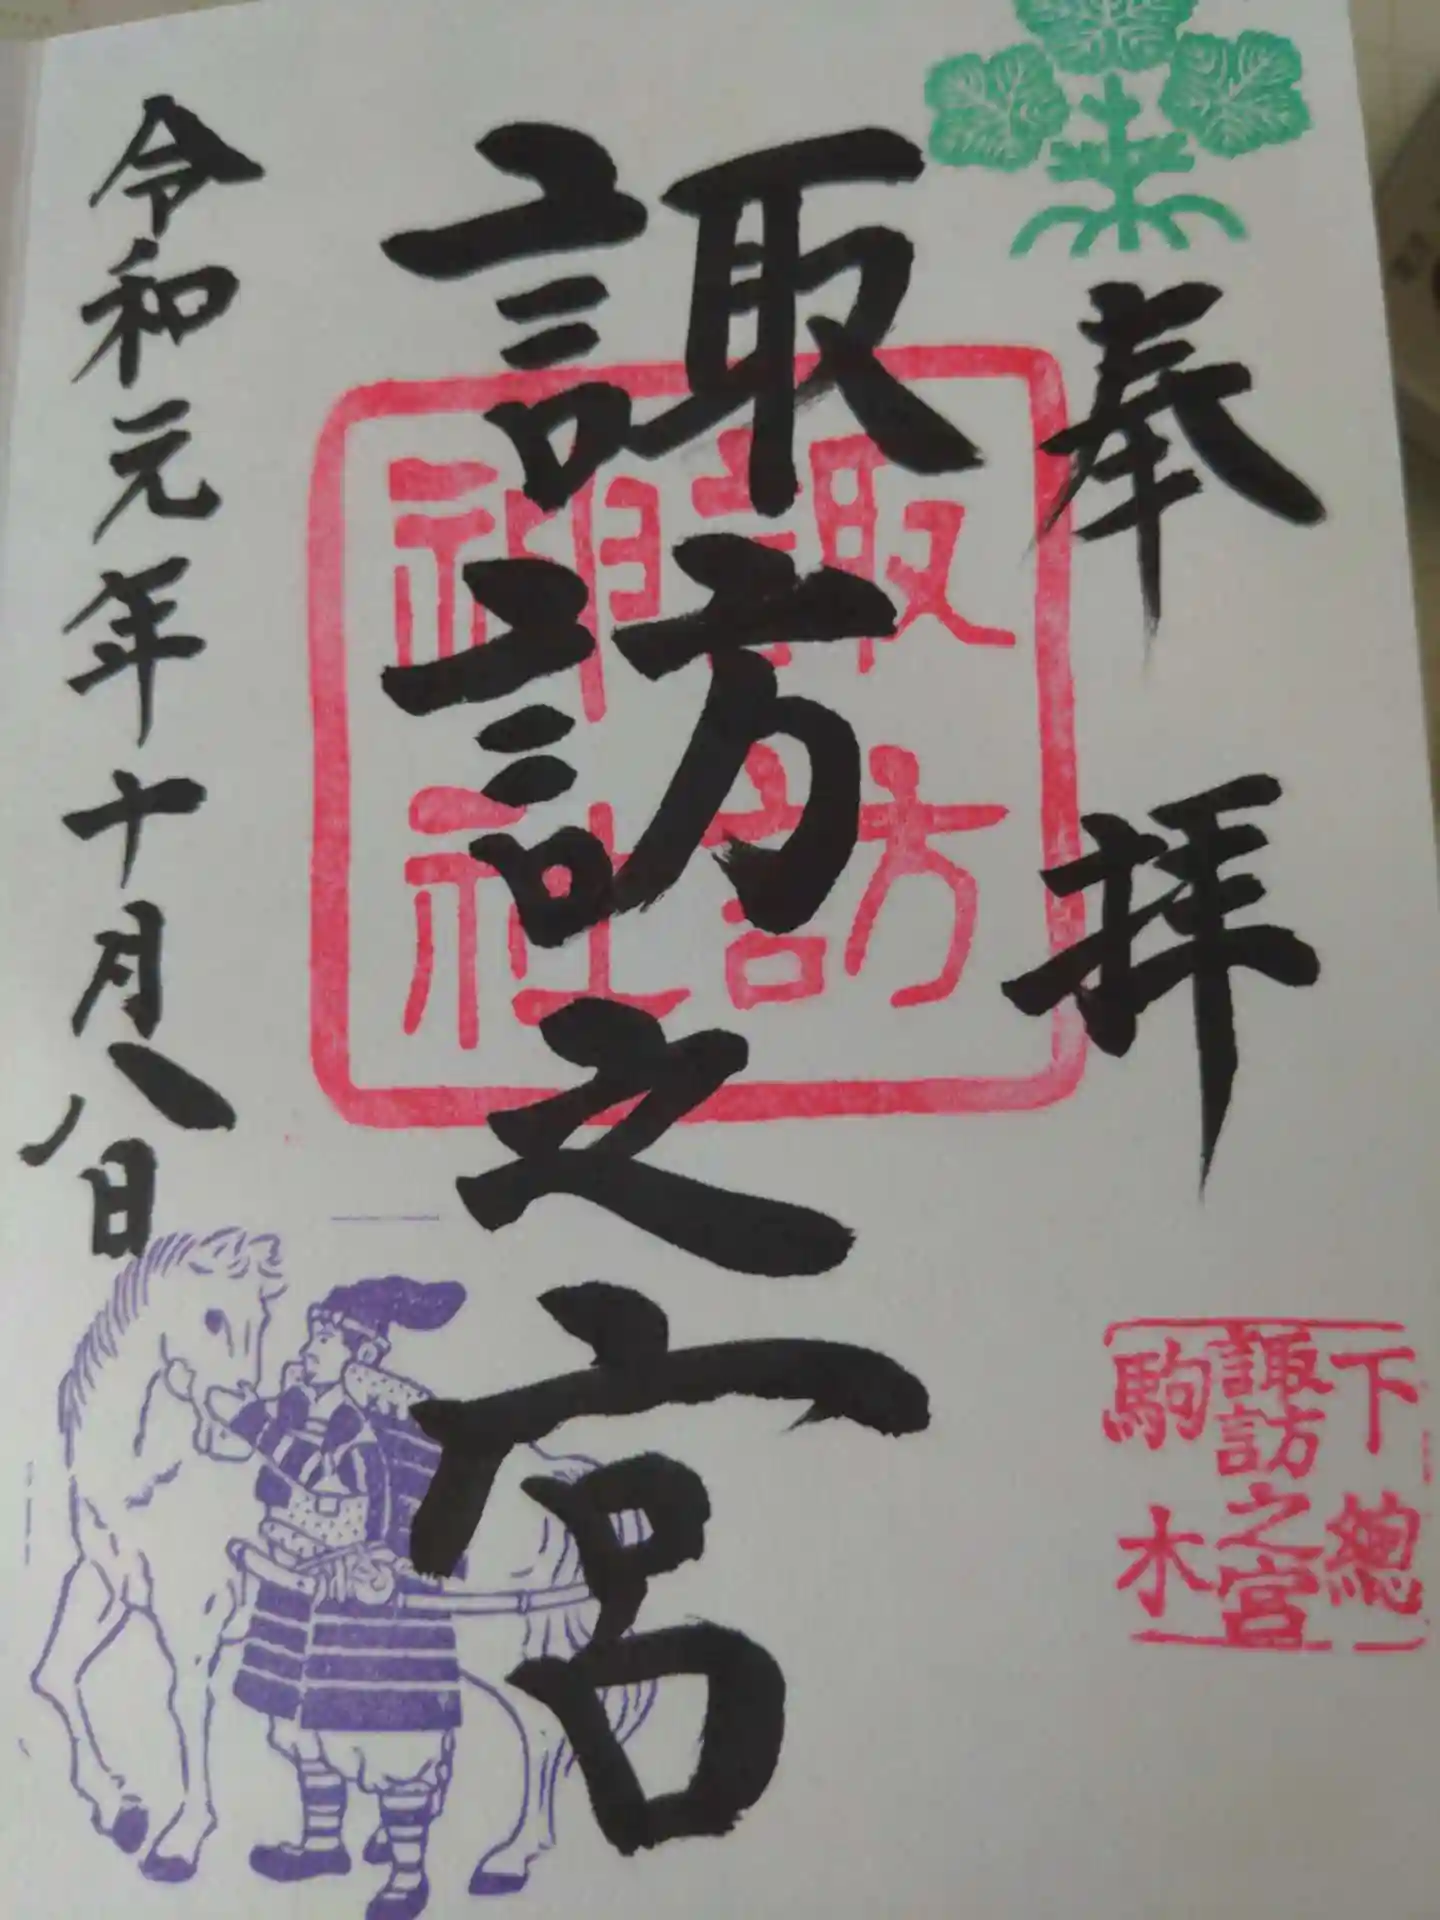 奉拝
諏訪之宮
令和元年十月八日
諏訪
神社
下總
諏訪之宮
駒木